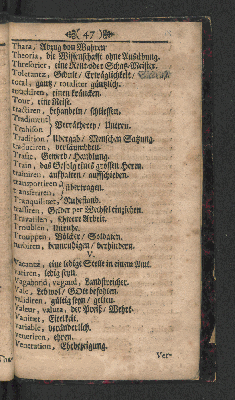 47
Thara, Abzug von Wahren
Theoria, die Wissenschafft ohne Ausübung.
Thresorier, eine Rent- oder Schatz-Meister.
Toleranza, Gedult / Erträglichkeit /
total, gantz / totaliter gäntzlich.
einen kräncken.
Tour, eine Reise.
tractiren, behandeln / schliessen.
Tradiment
Trahison } Verrätherey / Untreu.
Tradition, Ubergab / Menschen Satzung.
traduciren, verläumbden.
Trafic, Gewerb / Handlung.
Train, das Gefolg eines grossen Herrn.
trainiren, aufhalten / aufschieben.
transportiren
transferiren } übertragen.
Ruhestand.
trassiren, Gelder per Wechsel einziehen.
Travaillen, schwere Arbeit.
Troublen, Unruhe.
Trouppen, Völcker / Soldaten.
turbiren, beunruhigen / verhindern.
V.
Vacantz, eine ledige Stelle in einem Amt.
vaciren, ledig seyn.
Vagabond, vagant, Landstreicher.
Vale, Lebwol / GOtt befohlen.
validiren, gültig seyn / gelten.
Valeur, valuta, der Preiß / Wehrt.
Vanitet, Eitelkeit.
variable, veränderlich.
veneriren, ehren.
Veneration, Ehrbezeigung.
Ver-